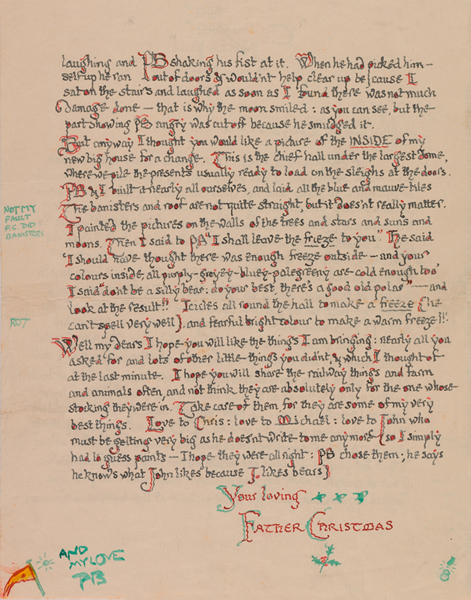 laughing and PB shaking his fist at it. When he had picked him-
self up he ran out of doors & wouldn't help clear up because I
sat on the stairs and laughed as soon as I found there was not much
damage done — that is why the moon smiled: as you can see, but the
part showing PB angry was cut off because he smudged it.
But anyway I thought you would like a picture of the INSIDE of my
new big house for a change. This is the chief hall under the largest dome,
where we pile the presents usually ready to load on the sleighs at the doors.
PB & I built it nearly all ourselves, and laid all the blue and mauve tiles
The banisters and roof are not quite straight, but it doesn't really matter.
NOT MY
FAULT
P.C. DID
BANISTERS
I painted the pictures on the walls of the trees and stars and suns and
moons. Then I said to PB "I shall leave the frieze to you". He said
"I should have thought there was enough freeze outside — and your
colours inside, all purply-greyey-bluey-palegreeny are cold enough too"
I said "don't be a silly bear: do your best, there's a good old polar" — and
look at the result!! Icicles all round the hall to make a freeze (he
can't spell very well), and fearful bright colour to make a warm freeze!!!
ROT
Well my dears I hope you will like the things I am bringing: nearly all you
asked for and lots of other little things you didn't, & which I thought of
at the last minute. I hope you will share the railway things and farm
and animals often, and not think they are absolutely only for the one whose
stocking they were in. Take care of them for they are some of my very
best things. Love to Chris: love to Michael: love to John who
must be getting very big as he doesn't write to me any more (so I simply
had to guess paints — I hope they were all right: PB chose them; he says
he knows what John likes because J. likes bears)
Your loving
FATHER CHRISTMAS
AND
MY LOVE
PB